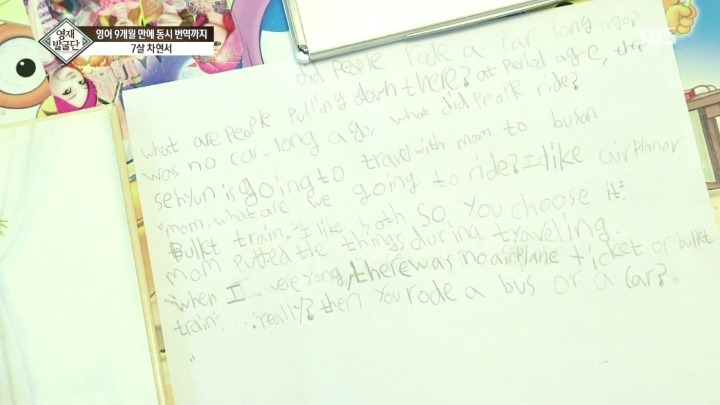 영재
발굴단
영어 9개월 만에 동시 번역까지
7살 차현서
SBS
did people rode a car long ago?
what are people pulling down there? at period age, the
was no car. long ago, what did people ride?
sehyun is going to travel with mom to busan
"mom, what are we going to ride? I like airplane or
Bullet train." "I like both so you choose it."
mom putted the things during traveling.
"when I were yong, there was no airplane ticket or bullet
train" .... "really? then you rode a bus or a car?
"